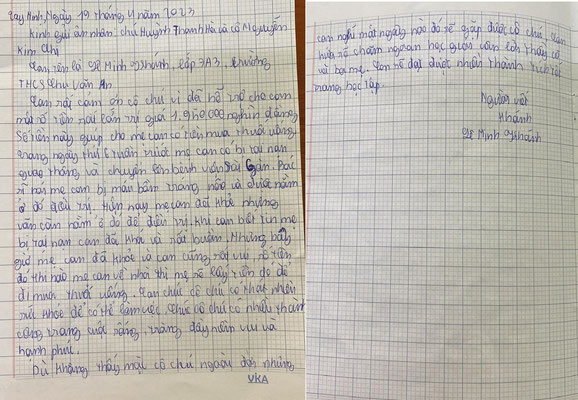 Tây Ninh, Ngày 19 tháng 4 năm 2023
Kính gửi ân nhân, chú Huỳnh Thanh Hà và cô Nguyễn
Kim Chi
Con tên là Lê Minh Khánh, lớp 7A3, trường
THCS Chu Văn An
Con rất cảm ơn cô chú vì đã hỗ trợ cho con
một số tiền trị giá 1.950.000 nghìn đồng
Số tiền này giúp cho mẹ con có tiền mua thuốc uống
trong ngày thứ 6 tuần trước mẹ con có bị tai nạn
giao thông và chuyển lên bệnh viện Sài Gòn.
vì mẹ con bị máu bầm trong não và được nằm
ở đó điều trị. Hôm nay mẹ con đã khỏe nhưng
vẫn còn nằm ở đó để điều trị. Khi con biết tin mẹ
bị tai nạn con đã khóc và rất buồn. Nhưng bây
giờ mẹ con đã khỏe và con cũng rất vui, số tiền
đó khi nào mẹ con về nhà thì mẹ sẽ lấy tiền đó để
đi mua thuốc uống. Con chúc cô chú có thật nhiều
sức khỏe để có thể làm việc. Chúc cô chú có nhiều thành
công trong cuộc sống, tràng đầy niềm vui và
hạnh phúc.
Dù không thấy mặt cô chú ngoài đời nhưng
VKA
con nghĩ một ngày nào đó sẽ gặp được cô chú. Con
hứa sẽ chăm ngoan học giỏi vân lời thầy cô
và ba mẹ. Con sẽ đạt được nhiều thành tích tốt
trong học tập.
Người viết
Khánh
Lê Minh Khánh